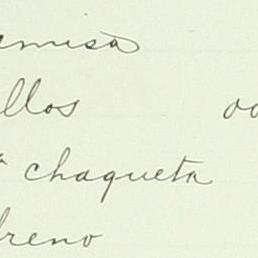 amisa
llos oo
a chaqueta
freno